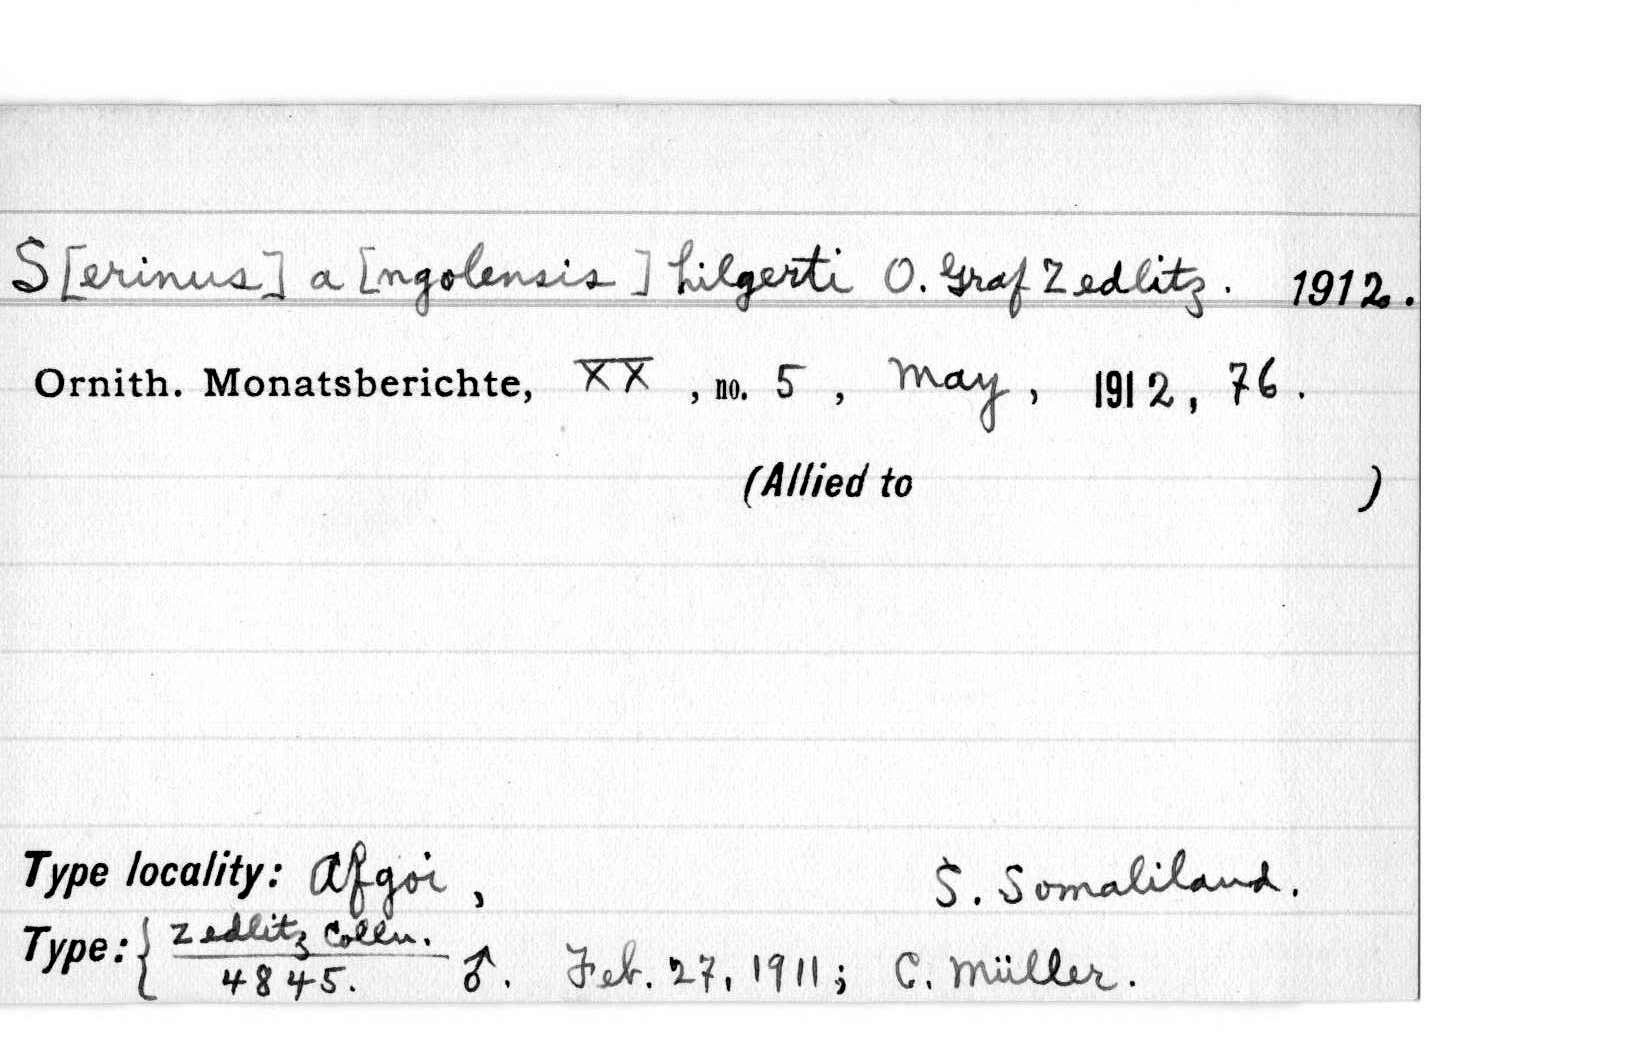 S[erinus] a[ngolensis] hilgerti O. Graf Zedlitz. 1912.
Ornith. Monatsberichte, XX, no. 5, May, 1912, 76.
(Allied to )
Type locality: Afgoi, S. Somaliland.
Type: { Zedlitz Colln.
4845. ♂. Feb. 27, 1911; C. Müller.